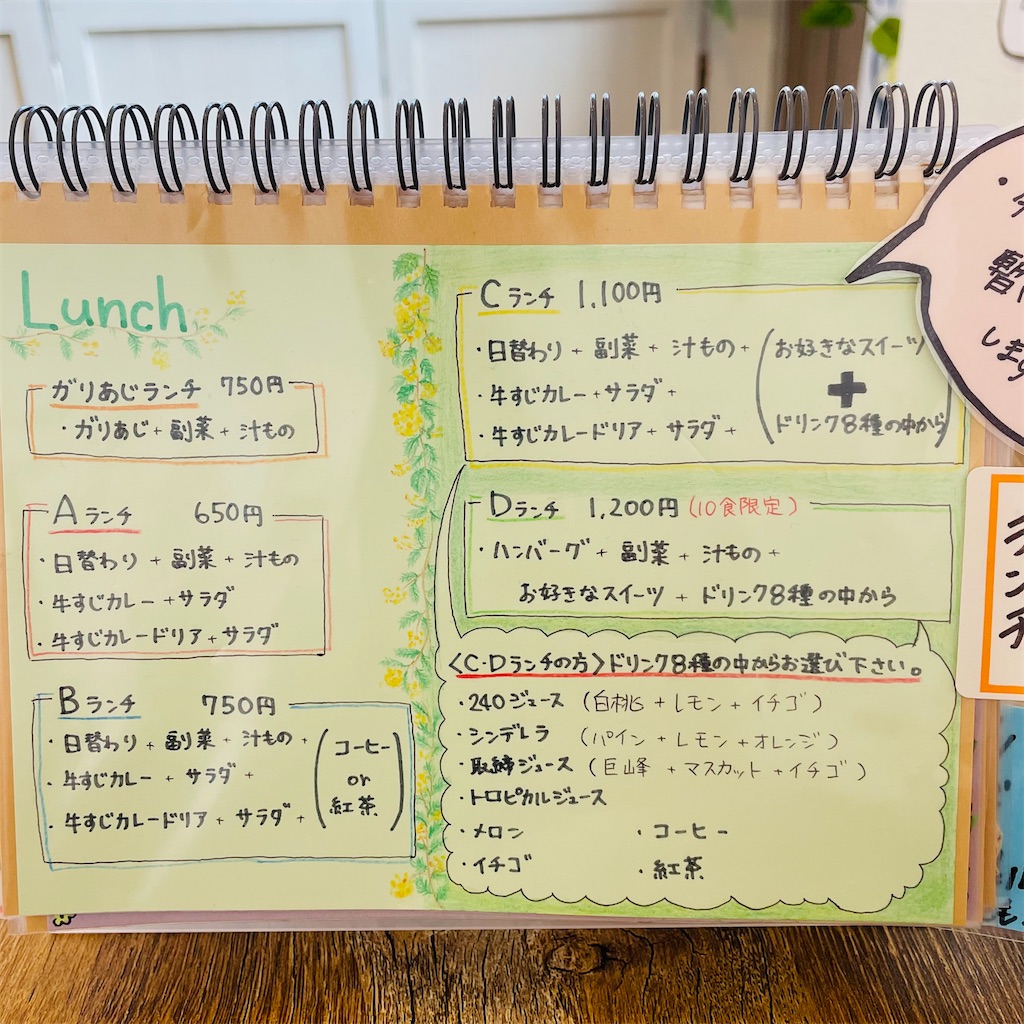 Lunch
ガりあじランチ 750円
・ガりあじ+副菜+汁もの
Aランチ 650円
・日替わり+副菜+汁もの
・牛すじカレー+サラダ
・牛すじカレードリア+サラダ
Bランチ 750円
・日替わり+副菜+汁もの+
・牛すじカレー+サラダ+
・牛すじカレードリア+サラダ+
(コーヒー
or
紅茶)
Cランチ 1,100円
・日替わり+副菜+汁もの+
・牛すじカレー+サラダ+
・牛すじカレードリア+サラダ+
(お好きなスイーツ
+
ドリンク8種の中から)
Dランチ 1,200円(10食限定)
・ハンバーグ+副菜+汁もの+
お好きなスイーツ+ドリンク8種の中から
〈C・Dランチの方〉ドリンク8種の中からお選び下さい。
・240ジュース(白桃+レモン+イチゴ)
・シンデレラ(パイン+レモン+オレンジ)
・取締ジュース(巨峰+マスカット+イチゴ)
・トロピカルジュース
・メロン ・コーヒー
・イチゴ ・紅茶
します
ランチ